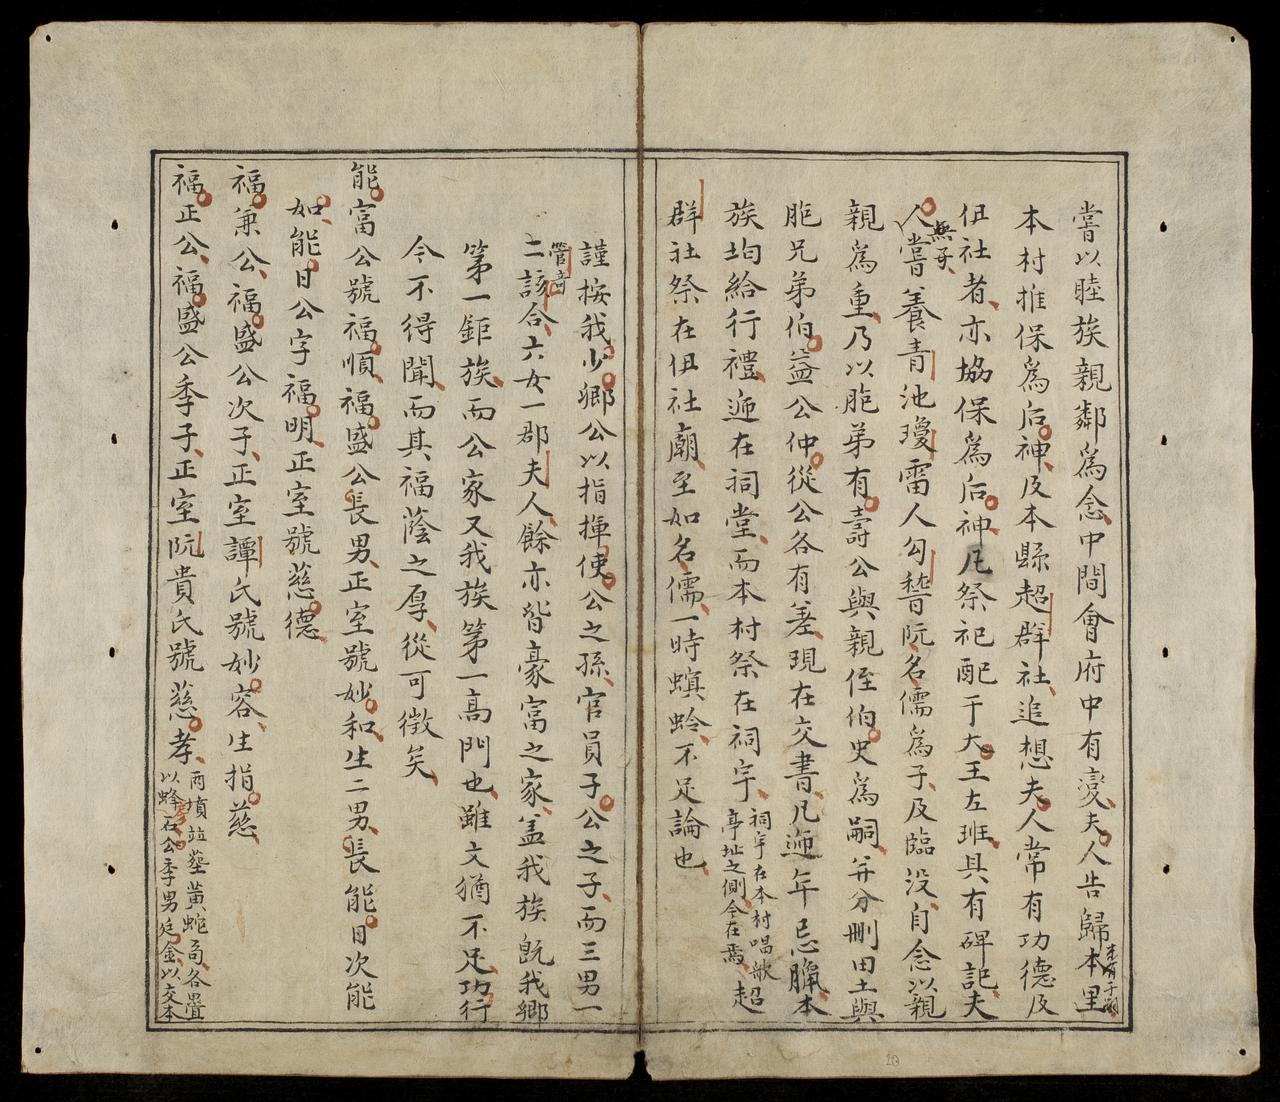 嘗以睦族親鄰為念中間會府中有變夫人告歸本里
本村推保為后神及本縣超群社追想夫人常有功德及
伹社者亦協保為后神凡祭祀配于大王左班具有碑記夫
人無子嘗養青池瓊雷人勾𣖕阮名儒為子及臨没自念以親
親為重乃以胞弟有壽公與親侄伯史為嗣并分刪田土與
胞兄弟伯益公仲從公各有差現在交書凡遞年忌臘本
族均給行禮遞在祠堂而本村祭在祠宇祠宇在本村唱歌亭址之側今在焉超
群社祭在伹社廟至如名儒一時螟蛉不足論也
謹按我少卿公以指揮使公之孫官員子公之子而三男一
二該合六女一郡夫人餘亦皆豪富之家盖我族既我鄉
第一鉅族而公家又我族第一高門也雖文猶不足功行
今不得聞而其福蔭之厚從可徵矣
能富公號福順福盛公長男正室號妙和生二男長能日次能
如能日公字福明正室號慈德
福兼公福盛公次子正室譚氏號妙容生指慈
福正公福盛公季子正室阮貴氏號慈孝兩墳並葬黃蛇奇各疊以蜂石公季男廷金以交本